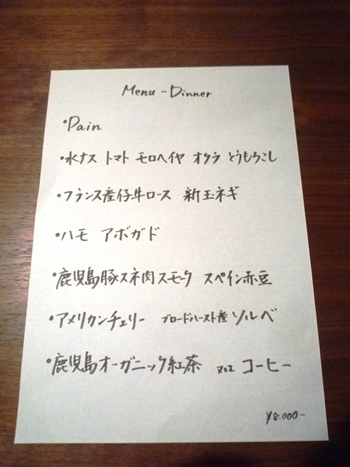 Menu - Dinner
・Pain
・水ナス トマト モロヘイヤ オクラ とうもろこし
・フランス産仔牛ロース 新玉ネギ
・ハモ アボガド
・鹿児島豚スネ肉スモーク スペイン赤豆
・アメリカンチェリー ブロードハースト産 ソルベ
・鹿児島オーガニック紅茶 又は コーヒー
¥8.000-